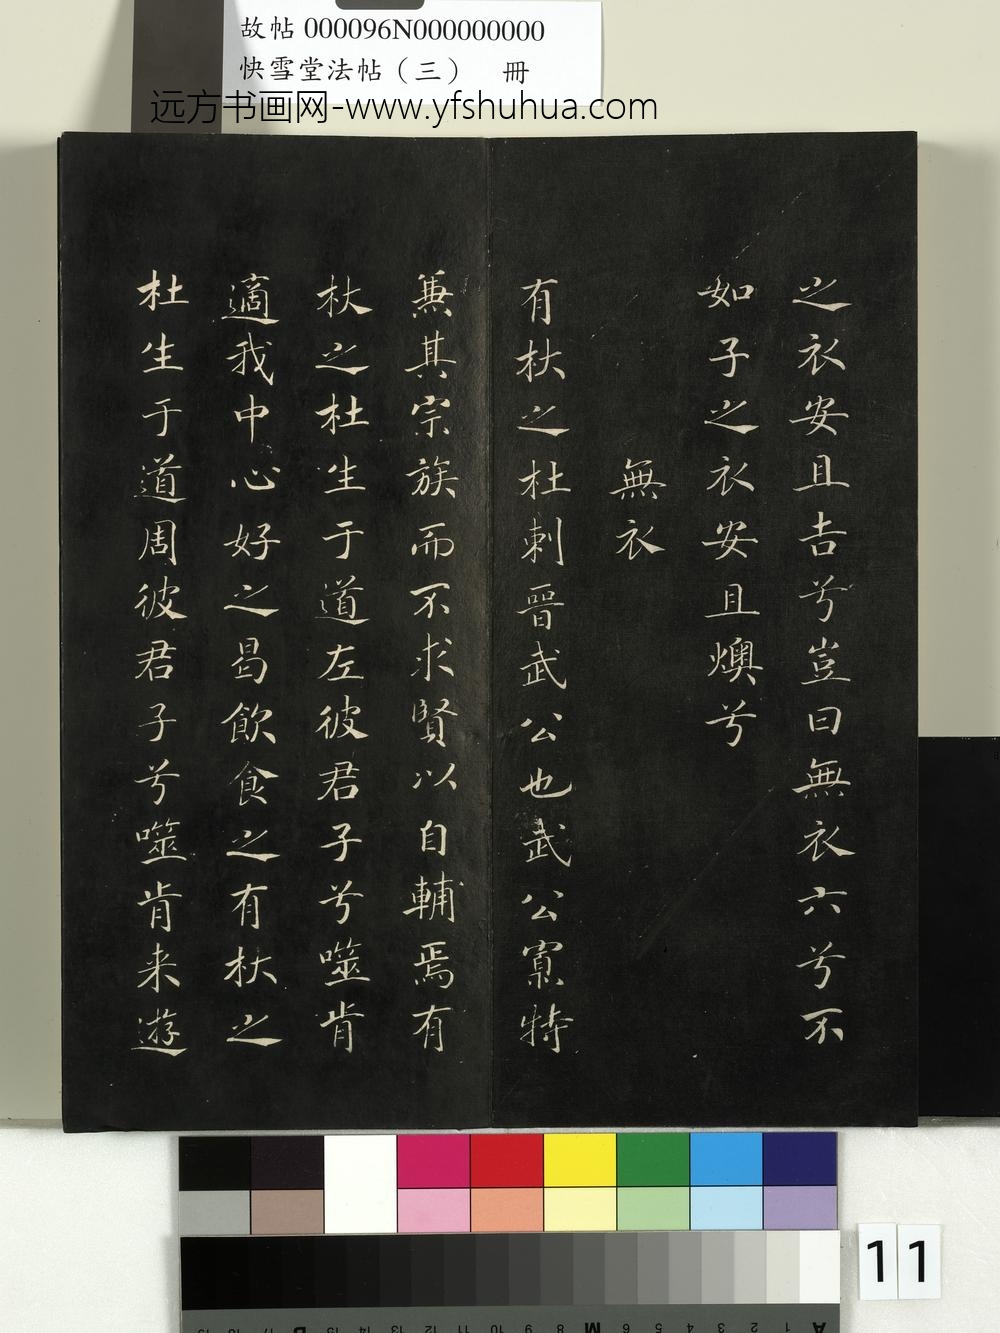 故帖 000096N000000000
快雪堂法帖（三） 冊
远方书画网-www.yfshuhua.com
之衣安且吉兮豈曰無衣六兮不
如子之衣安且燠兮
無衣
有杕之杜刺晉武公也武公寡特
兼其宗族而不求賢以自輔焉有
杕之杜生于道左彼君子兮噬肯
適我中心好之曷飲食之有杕之
杜生于道周彼君子兮噬肯来遊
11